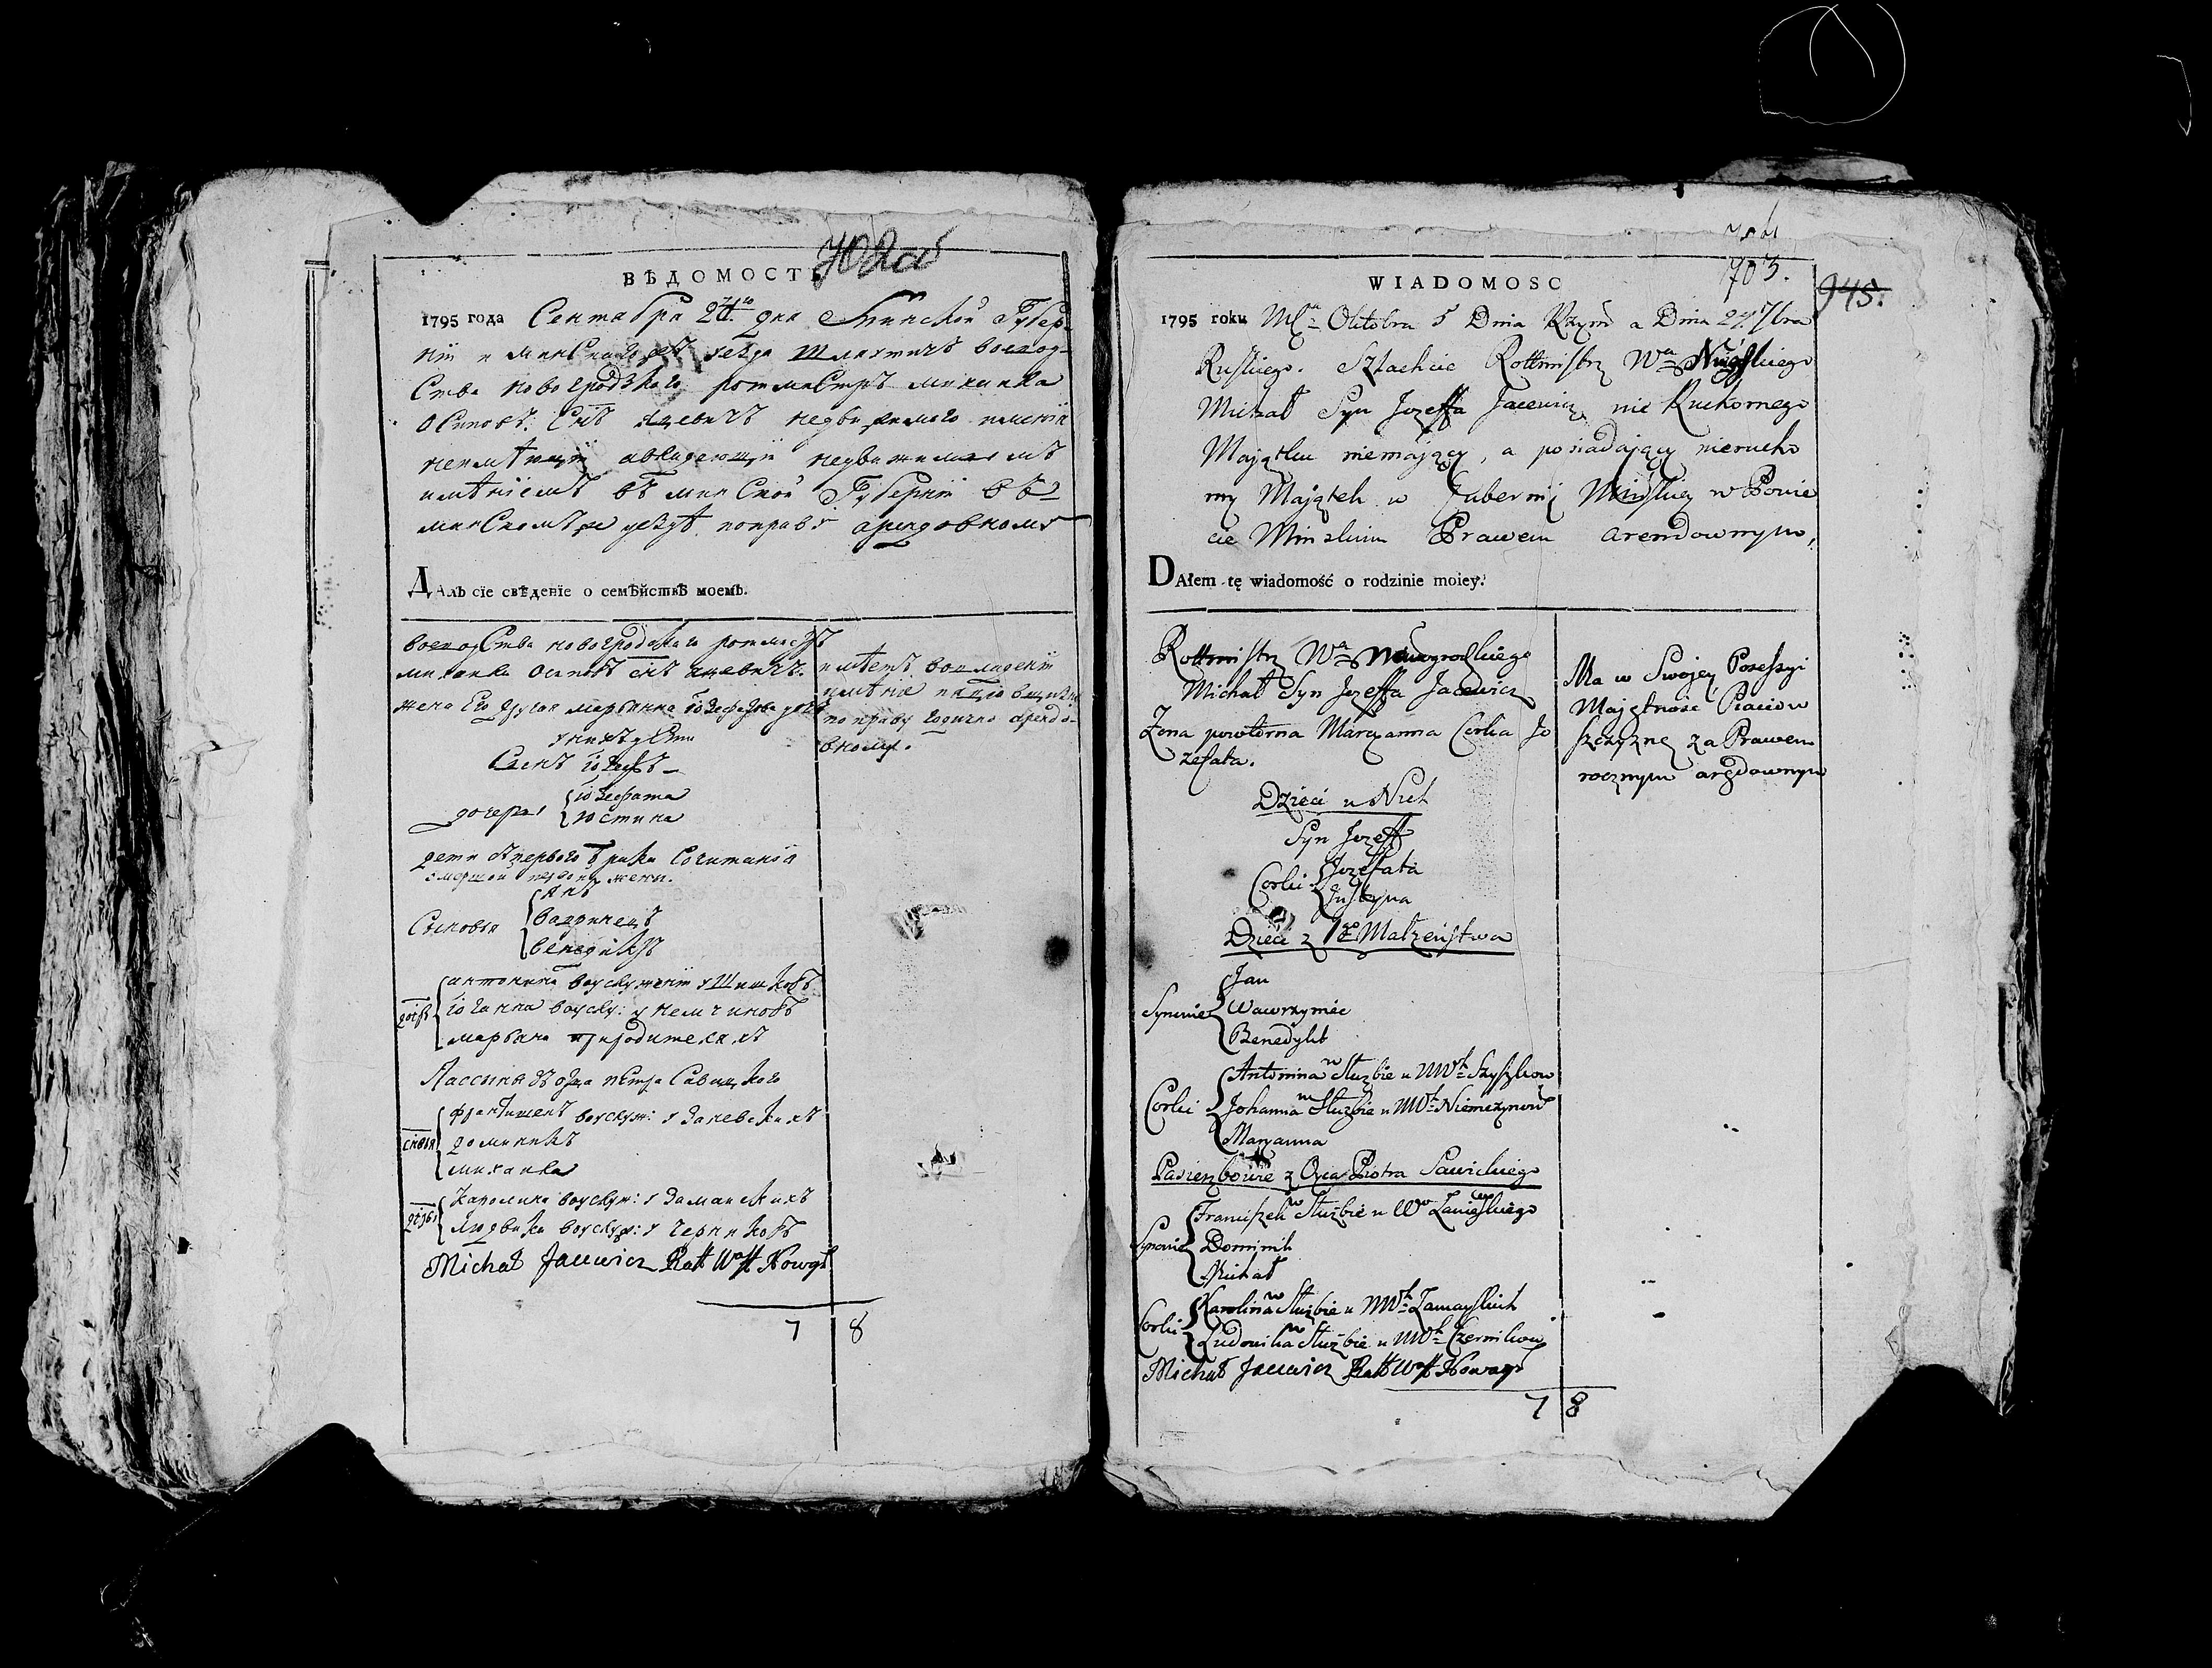 ВѢДОМОСТЬ
1795 года Сентабря 24го дня Минской Губер-
нїи и минскаго уезда Шляхтичъ воевод-
Ства новогродзкаго ротмиСтръ михайла
Осиповъ Снъ яцевичъ недвижимаго имѣнїя
неимѣющїй авладеющїй недвижимымъ
имѣнїемъ въ минСкой Губернїи въ
минСкомъ уездѣ поправу арендовному
ДАлъ сїе свѣденїе о семѣйствѣ моемъ.
воеводСтва новогродзкаго ротмистръ
михайла осиповъ снъ яцевичъ.
жена Его другая марьянна їозефатова дочь
унихъ дети
Сынъ їозефъ
дочери їозефата
юстина
дети Отпервого брака Сочитанїя
умершой первой жены.
Сыновья Янъ
вавринецъ
венедиктъ
дочѣрь антонина воуслуженїи у Шишковъ
їоганна воуслу: у немчиновъ
марьяна природителяхъ
Пассынки отца петра Савицкого
сновья францишекъ воуслуж: у Заневскихъ
доминикъ
михайла
дочѣри Каролина воуслуж: у Заманскихъ
людвика воуслуж: у Черниковъ
Michał Jacewicz Rott Wdztt Nowogr
7 8
имѣетъ вовладенїи
имѣнїя
по праву годично арендо-
вному.
702об
WIADOMOSC
703.
945.
1795 roku Mca Oktobra 5 Dnia Rzym a Dnia 24. 7bra
Ruskiego. Szlachcic Rottmistrz Wa Mińskiego
Michał Syn Jozeffa Jacewicz nie Ruchomego
Majątku niemający, a posiadający nierucho
my Majątek w Gubernij Mińskiej w Powie
cie Minskim Prawem arendownym,
DAłem tę wiadomość o rodzinie moiey:
Rottmistrz Wa Nowogrodzkiego
Michał Syn Jozeffa Jacewicz
Zona powtorna Maryanna Corka Jo
zefata.
Dzieci u Nich
Syn Jozeff
Corki Jozefata
Justyna
Dzieci z 1go Małżeństwa
Synowie Jan
Wawrzyniec
Benedykt
Corki Antonina w Służbie u WWch Szyszkow
Johanna w Służbie u WWch Niemczynow
Maryanna
Pasierzbowie z Oyca Piotra Sawickiego
Synowie Franciszek w Służbie u Wo Zaniewskiego
Dominik
Michał
Corki Karolina w Służbie u WWch Zamayskich
Ludowika w Służbie u WWch Czernikow
Michał Jacewicz Rott Wdztt Nowogr
7 8
Ma w Swojey Posessyi
Majętnosc
szczyznę za Prawem
rocznym arędownym